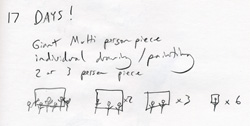 17 DAYS!
Giant Multi person piece
individual drawing / painting
2 or 3 person piece
x2 x3 x6